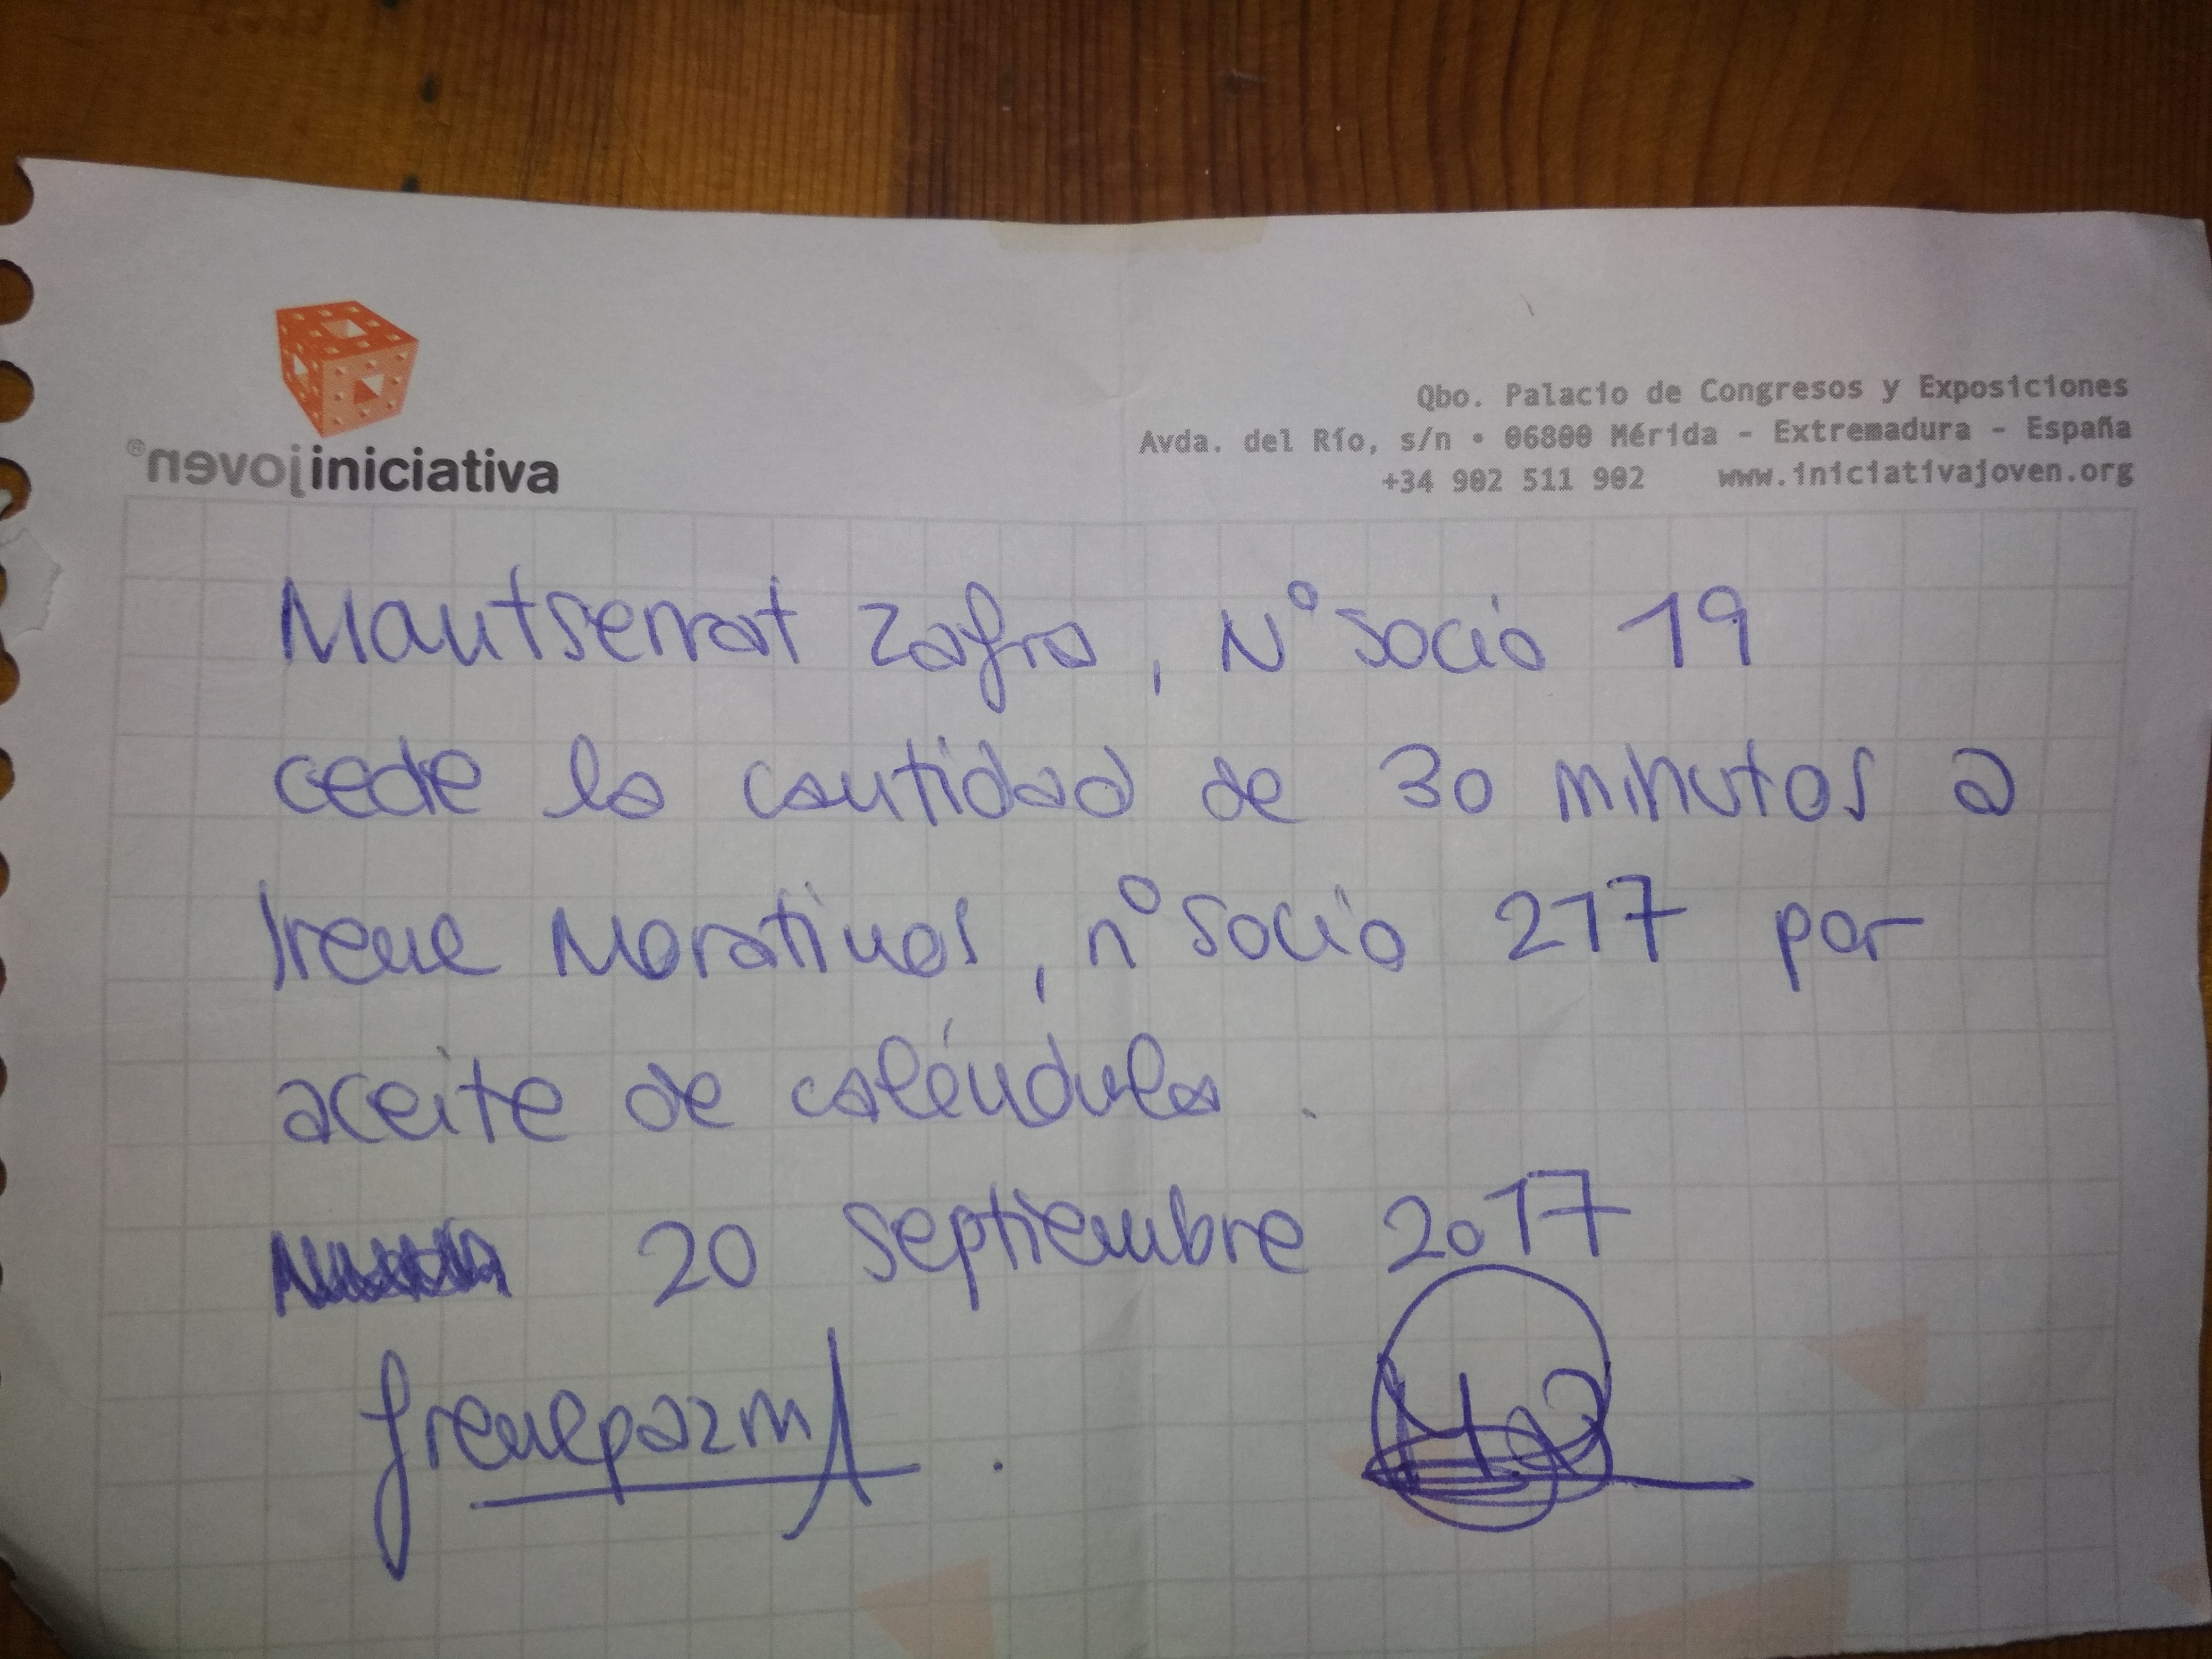 joven®iniciativa
Qbo. Palacio de Congresos y Exposiciones
Avda. del Río, s/n • 06800 Mérida - Extremadura - España
+34 902 511 902 www.iniciativajoven.org
Montserrat Zafra, Nº socio 19
cede la cantidad de 30 minutos a
Irene Moratinos, nº socio 217 por
aceite de caléndula.
20 septiembre 2017
Irenepazm